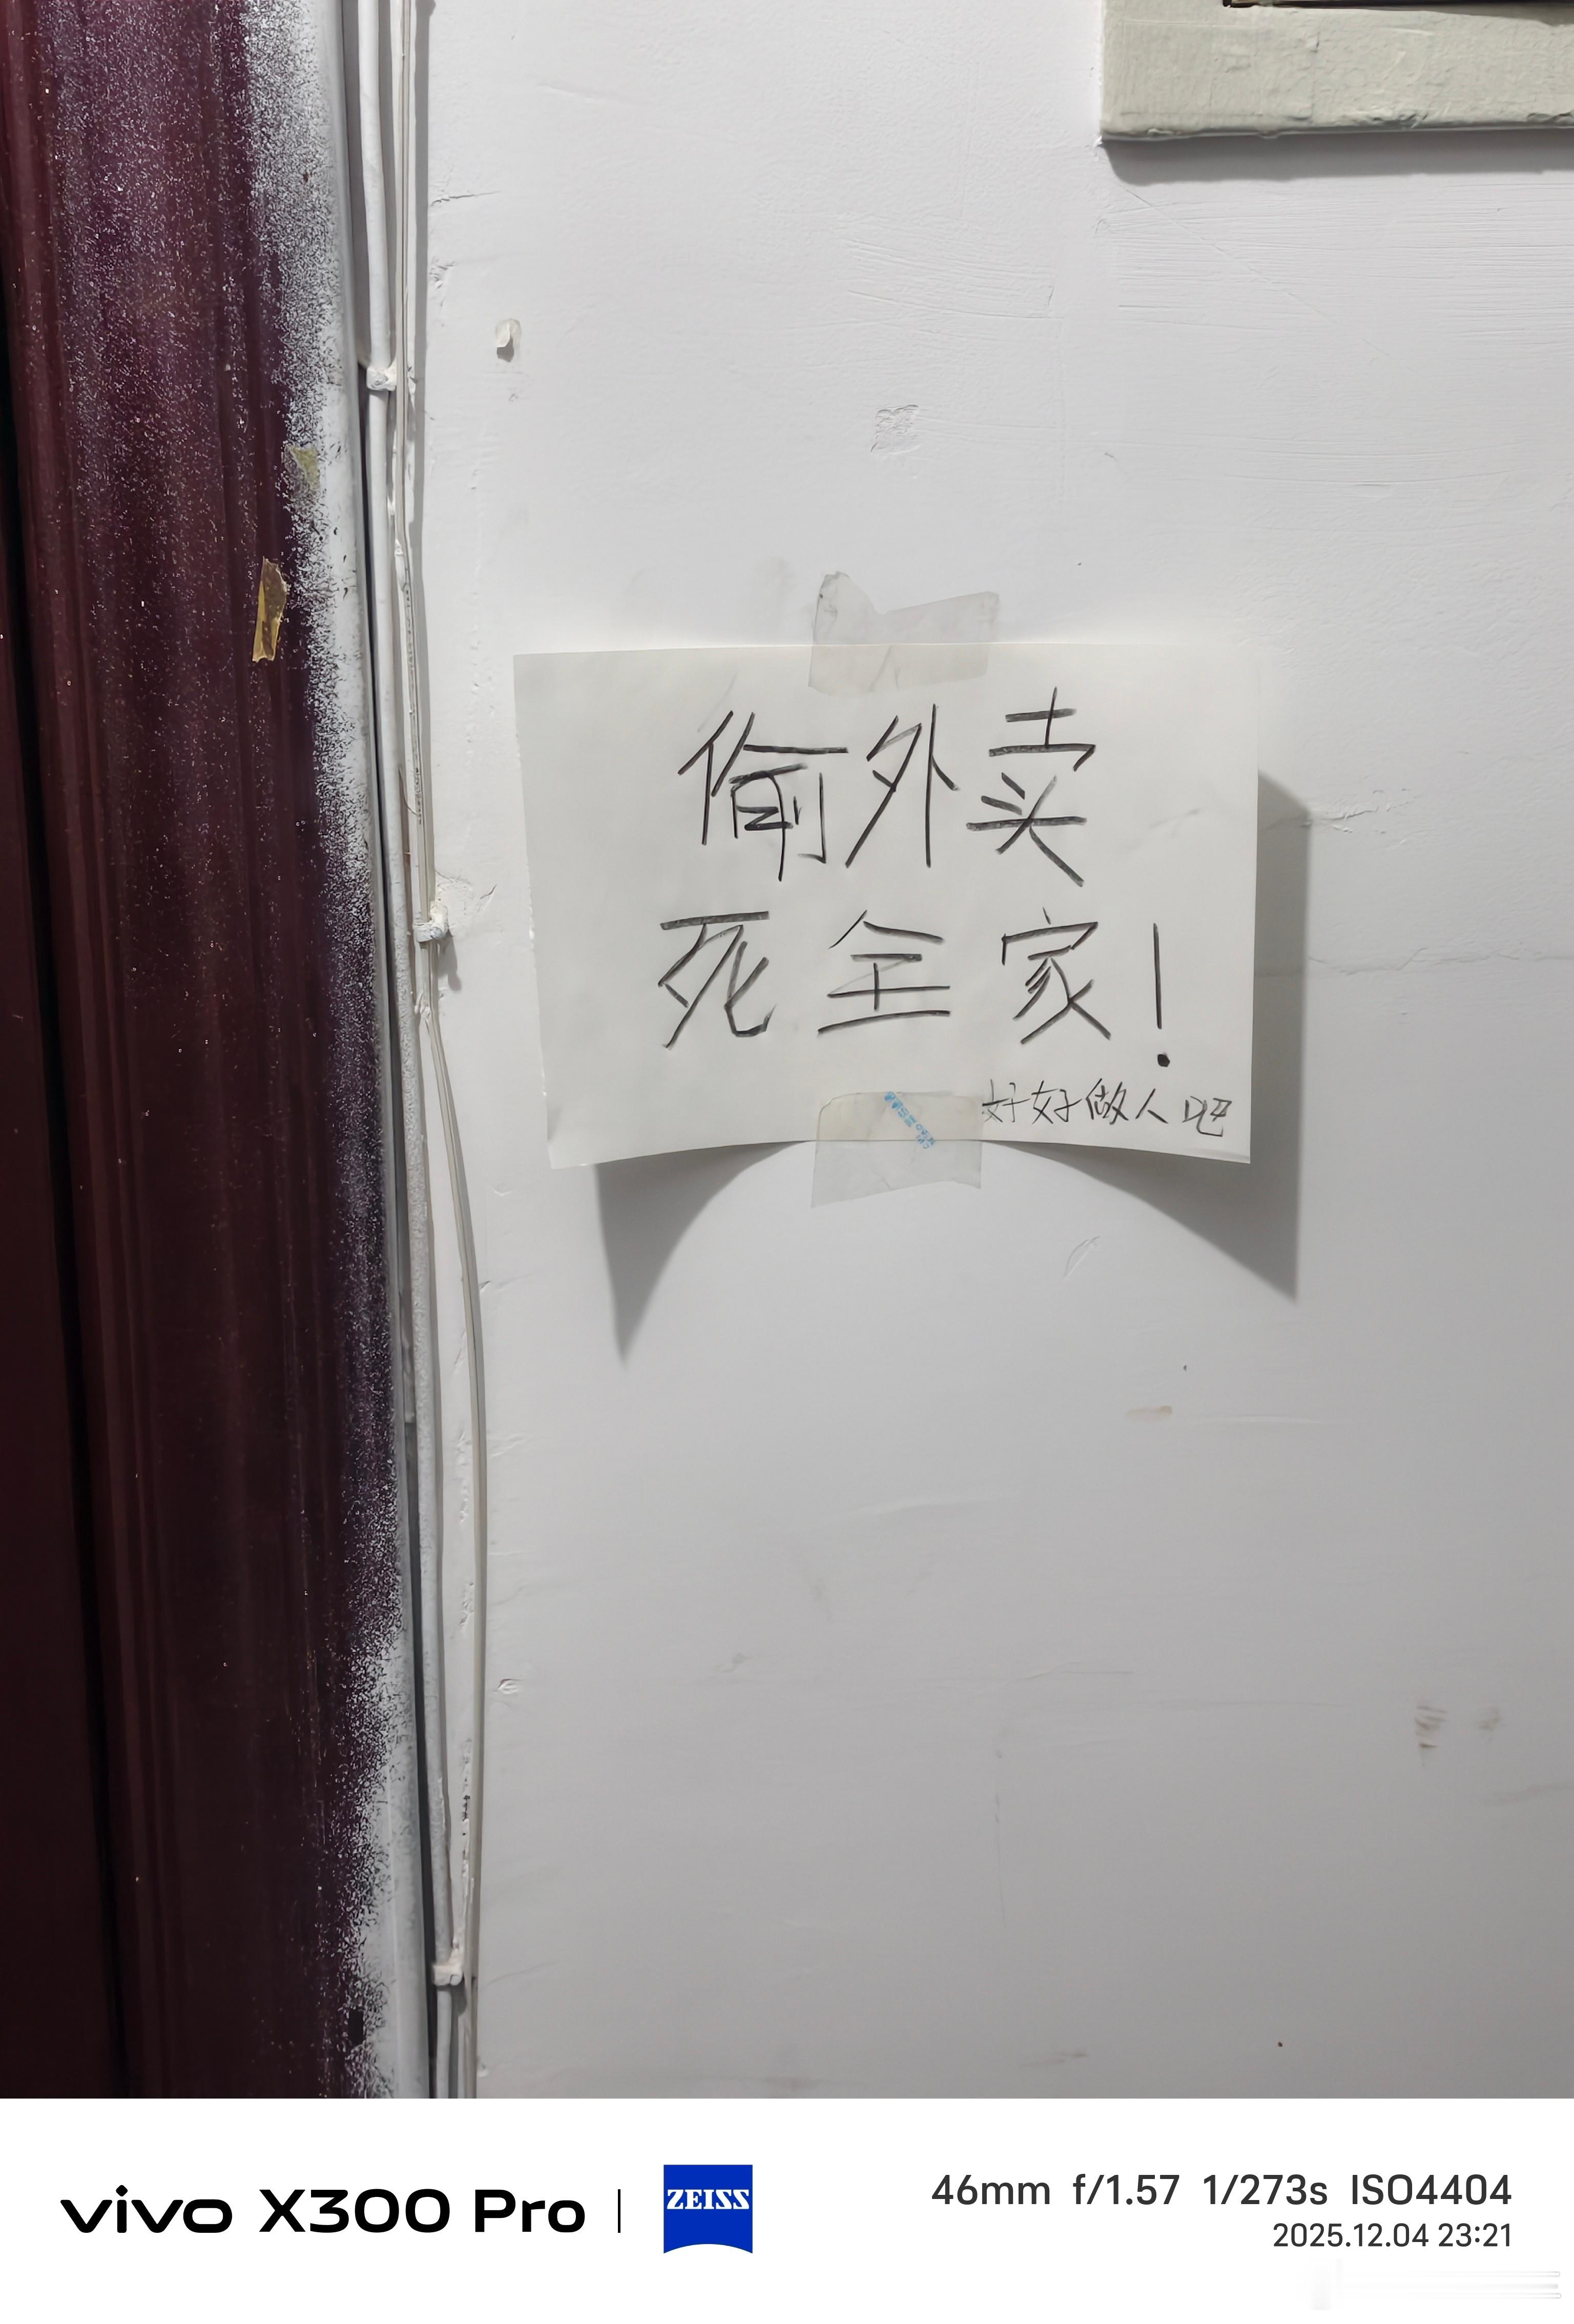 偷外卖
死全家！
好好做人吧
vivo X300 Pro | ZEISS
46mm f/1.57 1/273s ISO4404
2025.12.04 23:21